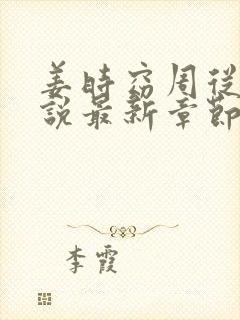 姜時窈周從
說最新章節
李霞